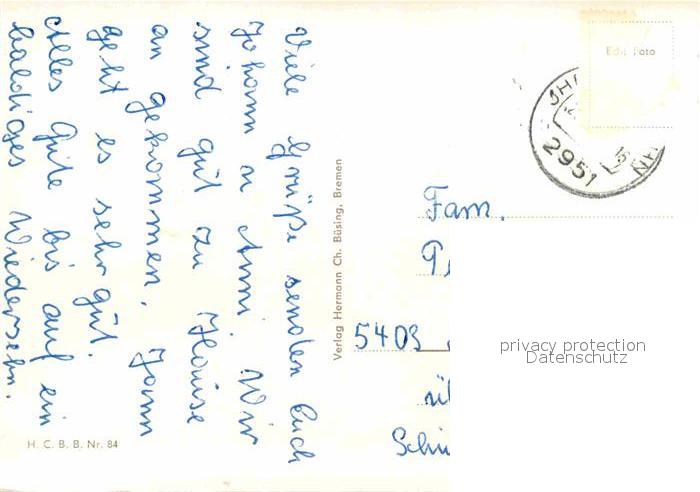 Viele Grüße senden Euch
Johann u Anni. Wir
sind gut zu Hause
an gekommen.
geht es sehr gut.
Alles Gute bis auf ein
baldiges Wiedersehn.
H. C. B. B. Nr. 84
Verlag Hermann Ch. Büsing, Bremen
Echt Foto
2951
Fam.
5403
privacy protection
Datenschutz